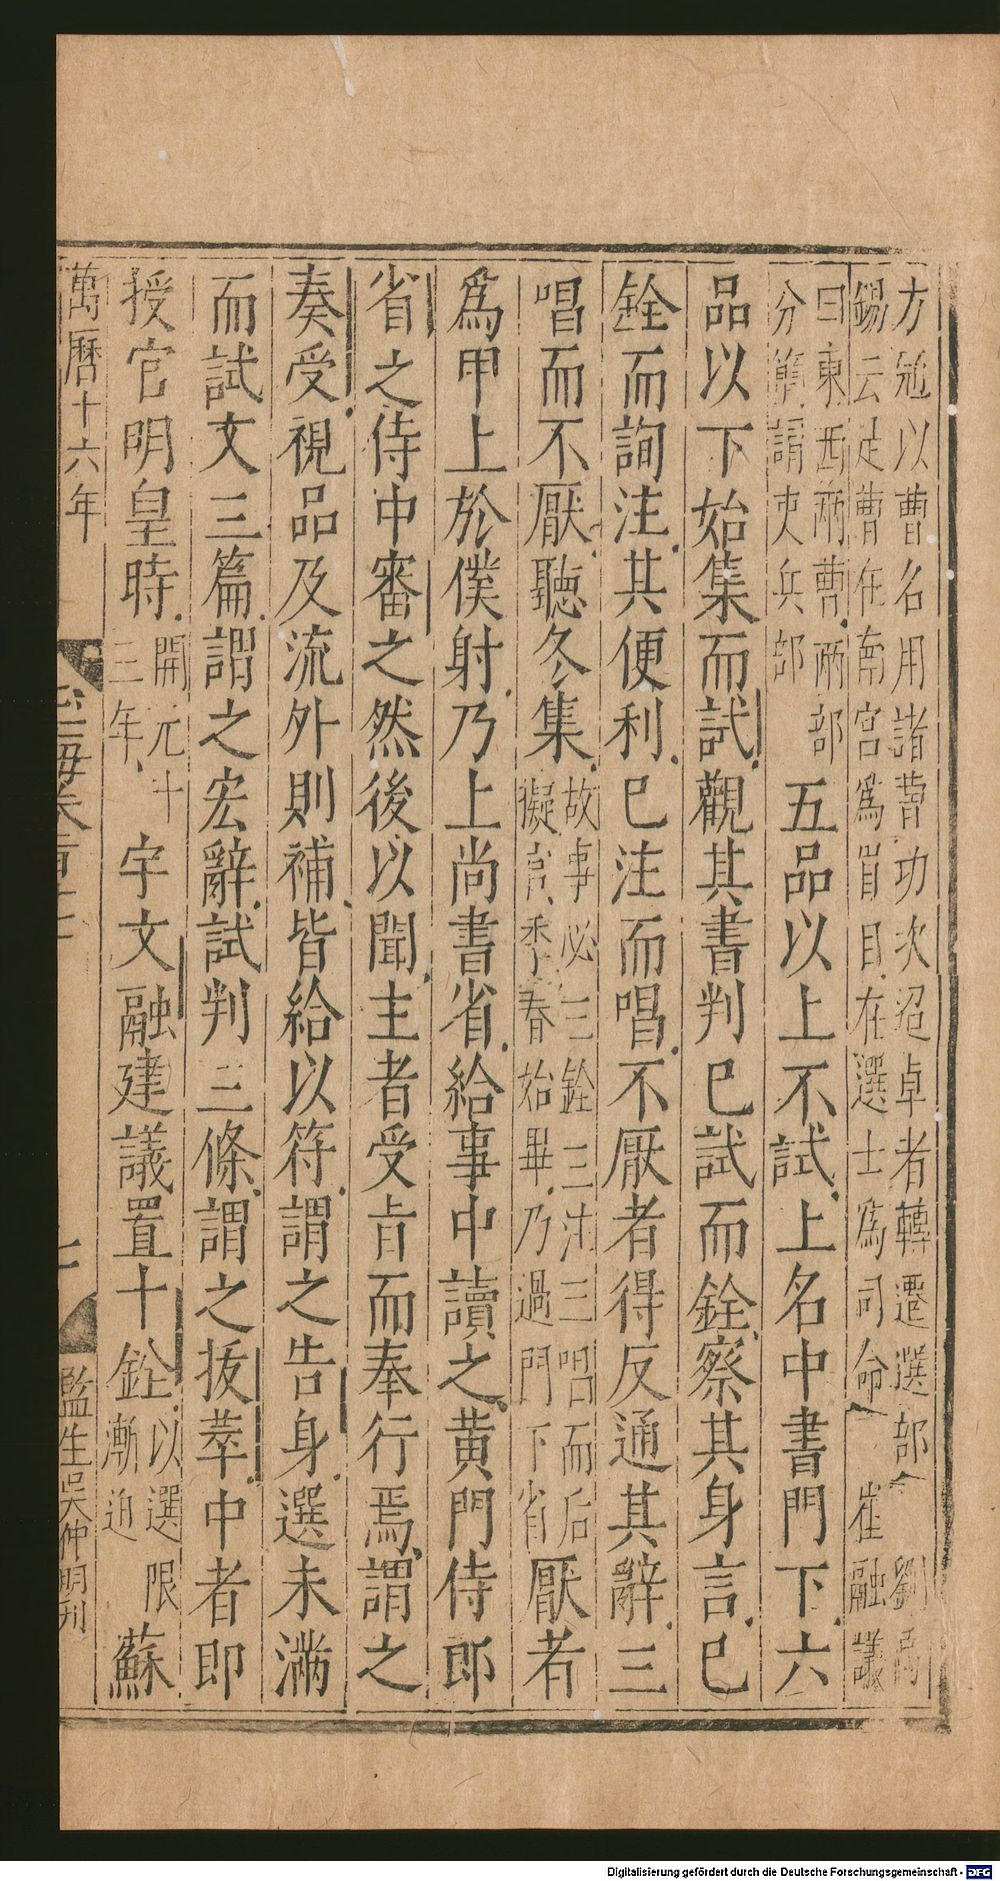 方冠以曹名用諸曹功次迢卓者轉遷選部 劉禹
錫云是曹在南宮為眉目在選士為司命 崔融議
曰東西兩曹兩部
分簡謂吏兵部
五品以上不試上名中書門下六
品以下始集而試觀其書判已試而銓察其身言已
銓而詢注其便利已注而唱不厭者得反通其辭三
唱而不厭聽冬集
故事必三銓三注三唱而后
擬官季春始畢乃過門下省
厭者
為甲上於僕射乃上尚書省給事中讀之黄門侍郎
省之侍中審之然後以聞主者受旨而奉行焉謂之
奏受視品及流外則補皆給以符謂之告身選未滿
而試文三篇謂之宏辭試判三條謂之拔萃中者即
授官明皇時
開元十
三年
宇文融建議置十銓
以選限
漸迫
蘇
萬曆十六年
玉海卷一百十七
監生吳仲明刊
Digitalisierung gefördert durch die Deutsche Forschungsgemeinschaft - DFG